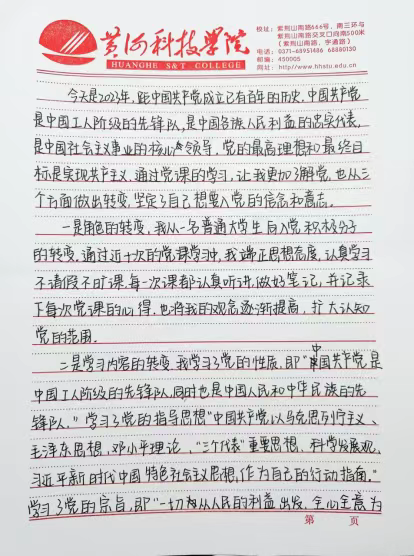 黄河科技学院
HUANGHE S&T COLLEGE
校址：紫荆山南路666号，南三环与
紫荆山南路交叉口向南500米
（紫荆山南路、宇通路）
电话：0371-68951486 68880130
邮编：450005
网址：http://www.hhstu.edu.cn
今天是2023年，距中国共产党成立已有百年的历史，中国共产党
是中国工人阶级的先锋队，是中国各族人民利益的忠实代表，
是中国社会主义事业的核心领导，党的最高理想和最终目
标是实现共产主义，通过党课的学习，让我更加了解党，也从三
个方面做出转变，坚定了自己想要入党的信念和意志。
一是角色的转变，我从一名普通大学生向入党积极分子
的转变，通过近十次的党课学习中，我端正思想态度，认真学习
不请假不旷课，每一次课都认真听讲，做好笔记，并记录
下每次党课的心得，也将我的观念逐渐提高，扩大认知
党的范围。
二是学习内容的转变，我学习了党的性质，即“中国共产党是
中国工人阶级的先锋队，同时也是中国人民和中华民族的先
锋队。”学习了党的指导思想“中国共产党以马克思列宁主义、
毛泽东思想，邓小平理论、“三个代表”重要思想、科学发展观，
习近平新时代中国特色社会主义思想，作为自己的行动指南。”
学习了党的宗旨，即“一切为从人民的利益出发，全心全意为
第 页